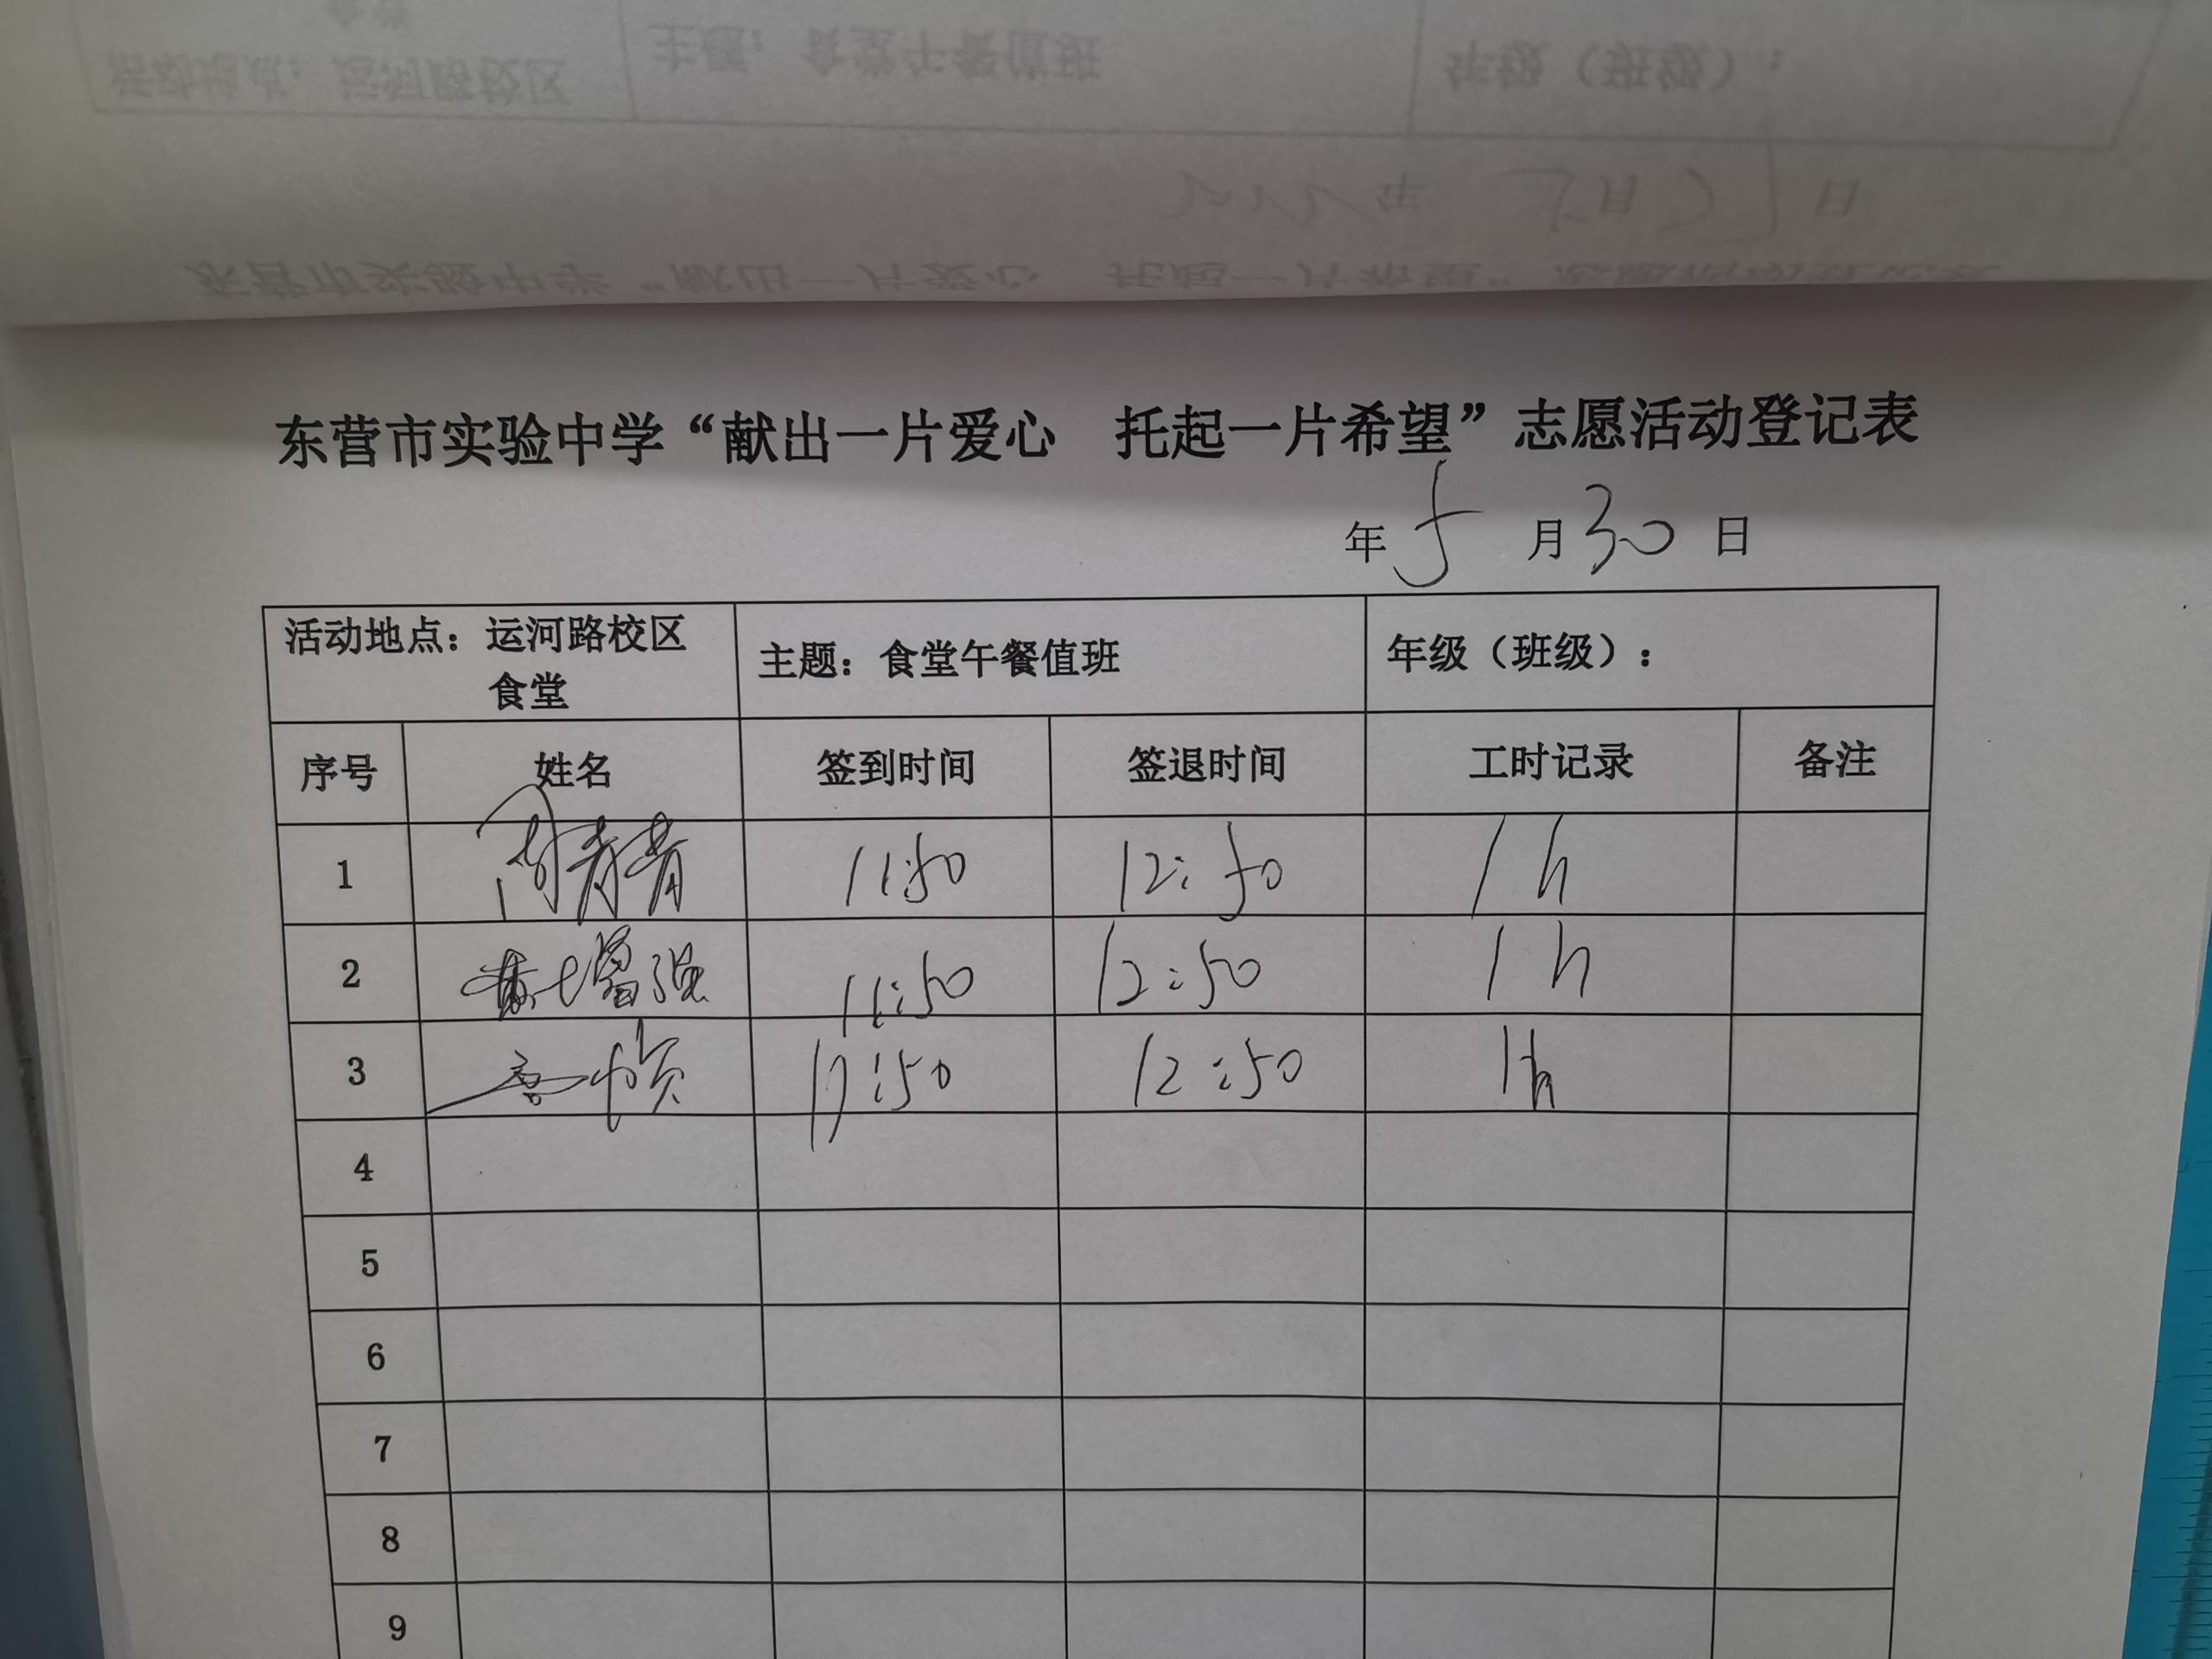 东营市实验中学“献出一片爱心 托起一片希望”志愿活动登记表
年 5 月 30 日
活动地点：运河路校区食堂 主题：食堂午餐值班 年级（班级）：
序号 姓名 签到时间 签退时间 工时记录 备注
1 周青青 11:50 12:50 1h
2 增强 11:50 12:50 1h
3 11:50 12:50 1h
4
5
6
7
8
9